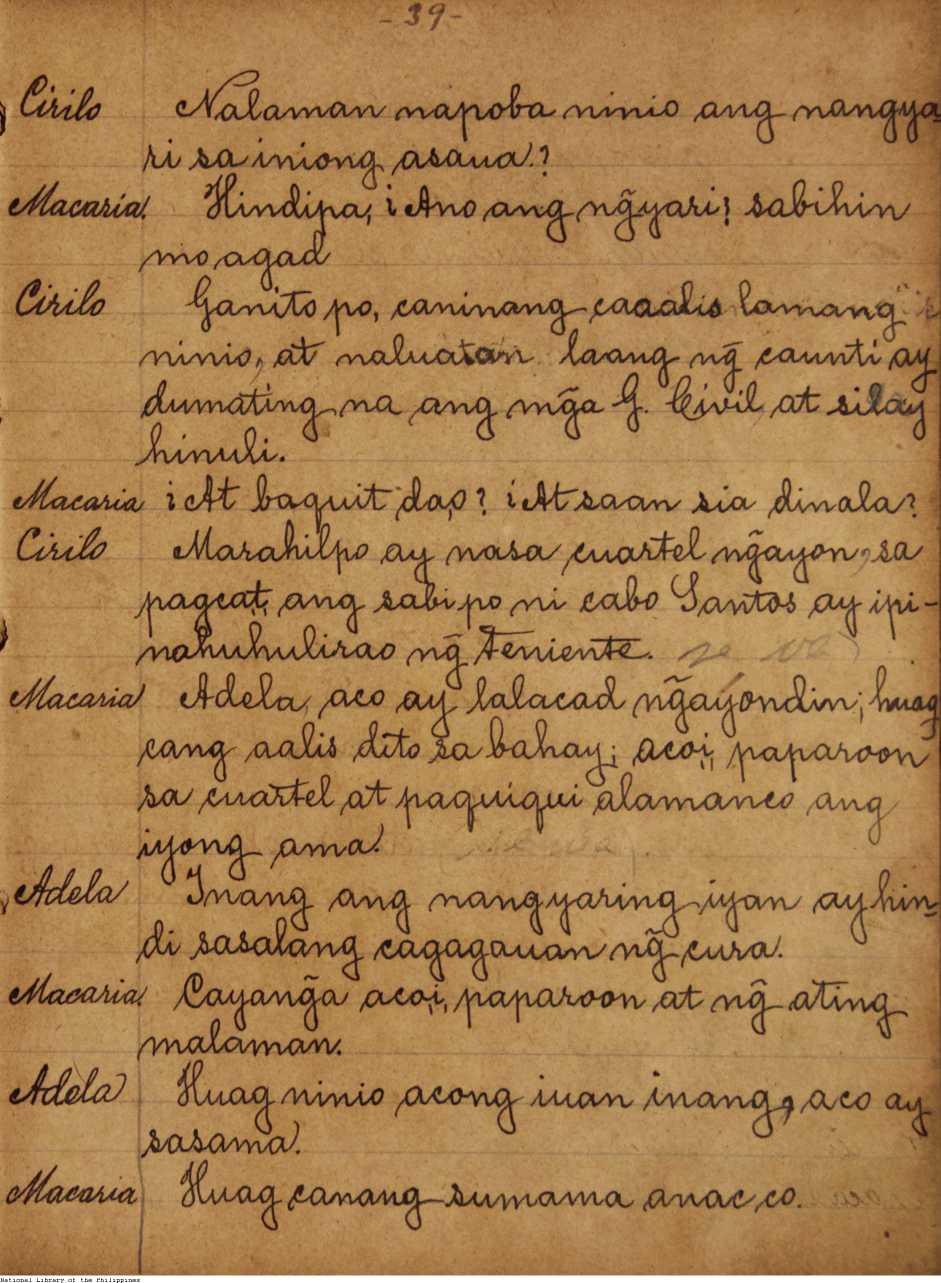 -39-
Cirilo Nalaman napoba ninio ang nangya-
ri sa iniong asaua?
Macaria. Hindipa, ¡Ano ang ng̃yari? sabihin
mo agad
Cirilo Ganito po, caninang caaalis lamang
ninio, at naluatan laang ng̃ caunti ay
dumating na ang mg̃a G. Civil, at silay
hinuli.
Macaria ¡At baquit dao? ¡At saan sia dinala?
Cirilo Marahilpo ay nasa cuartel ng̃ayon, sa
pagcat, ang sabi po ni cabo Santos ay ipi-
nahuhulirao ng̃ teniente.
Macaria Adela, aco ay lalacad ng̃ayondin; huag
cang aalis dito sa bahay; acoi, paparoon
sa cuartel at paquiqui alamanco ang
iyong ama.
Adela Inang ang nangyaring iyan ay hin-
di sasalang cagagauan ng̃ cura.
Macaria. Cayang̃a acoi, paparoon at ng̃ ating
malaman.
Adela Huag ninio acong iuan inang, aco ay
sasama.
Macaria Huag canang sumama anac co.
National Library of the Philippines